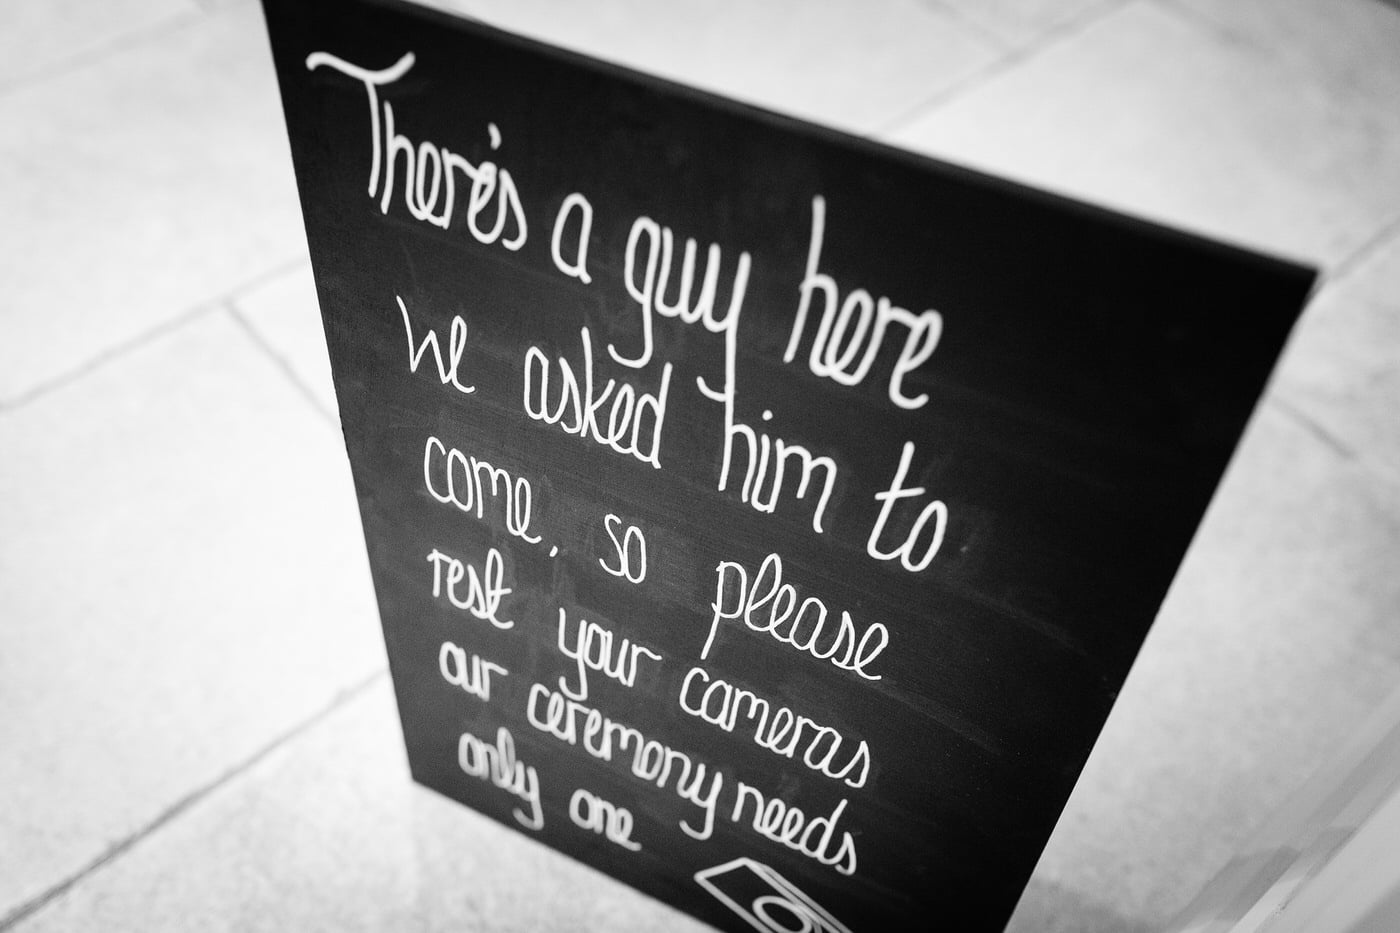 There's a guy here
we asked him to
come, so please
rest your cameras
our ceremony needs
only one